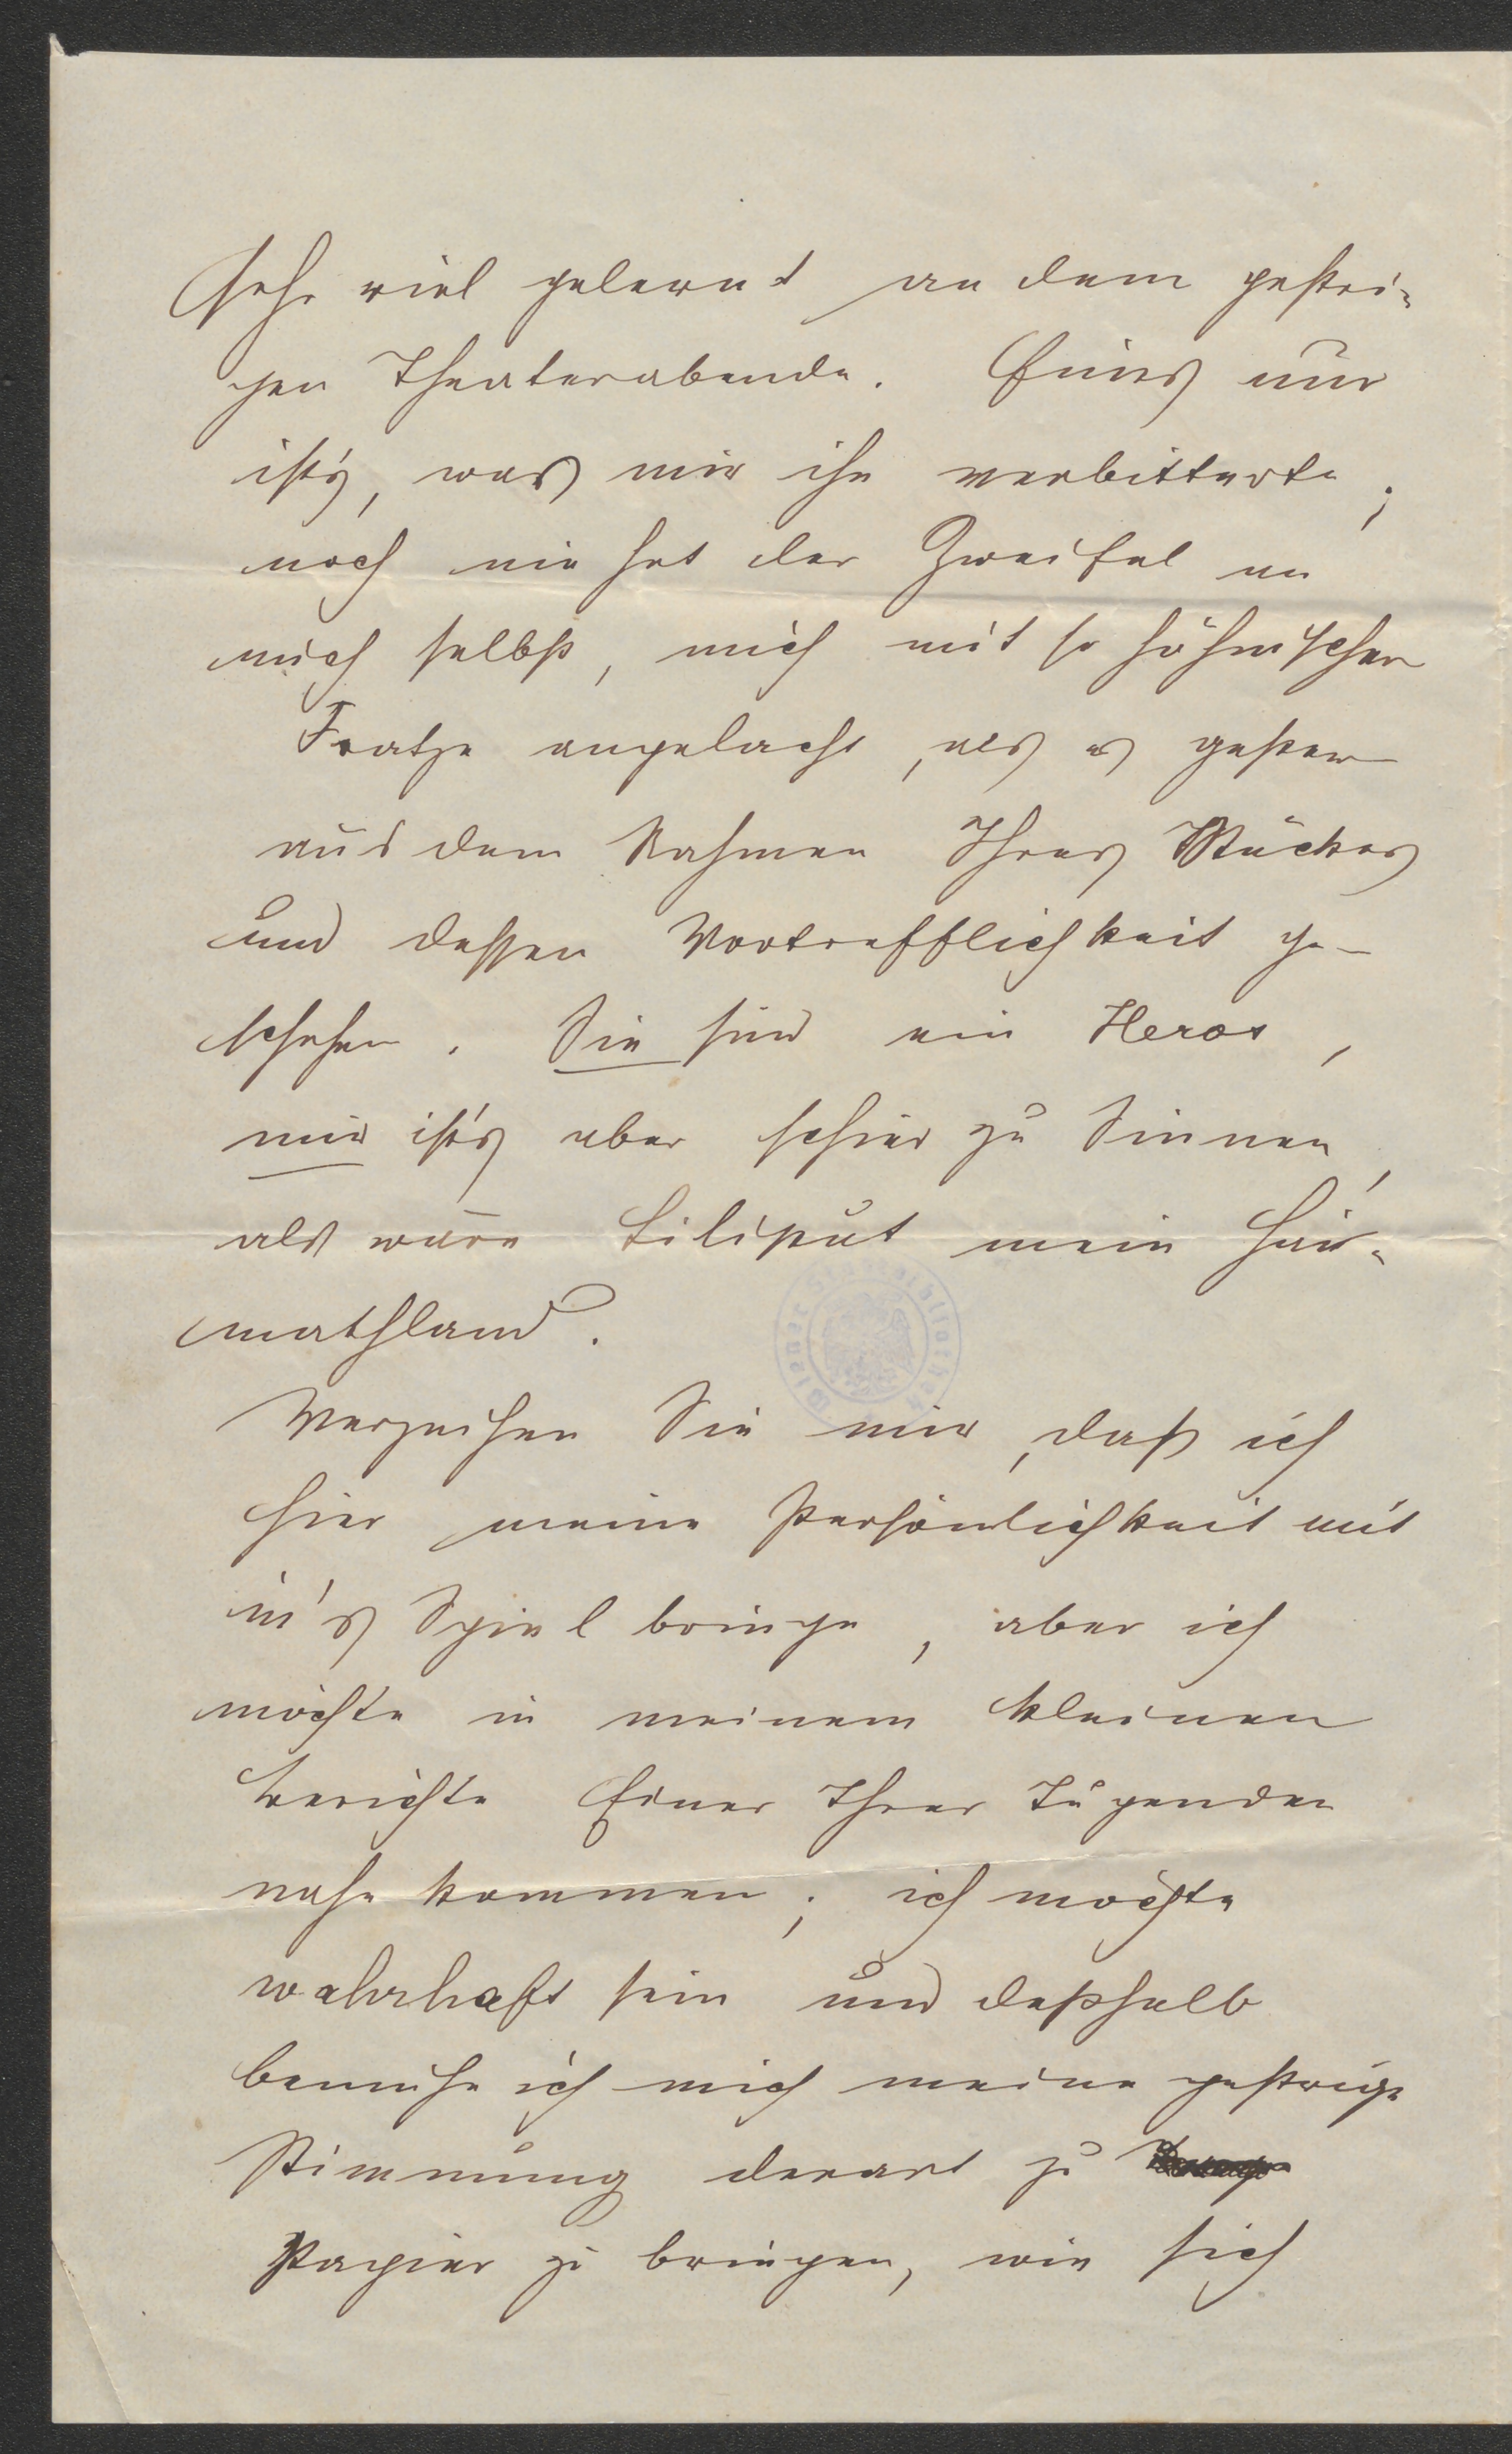 sehr viel gelernt an dem gestri-
gen Theaterabende. Eines nur
ist's, was mir ihn verbitterte;
noch nie hat der Zweifel an
mich selbst, mich mit so höhnischer
Fratze angelacht, als es gestern
aus dem Rahmen Ihres Stückes
und dessen Vortrefflichkeit ge-
schehen. Sie sind ein Heros,
mir ist's aber schier zu Sinnen,
als wäre Liliput mein Hei-
mathland.
Wiener Stadtbibliothek
Verzeihen Sie mir, daß ich
hier meine Persönlichkeit mit
in's Spiel bringe, aber ich
möchte in meinem kleinen
Berichte Einer Ihrer Tugenden
nahe kommen; ich möchte
wahrhaft sein und deßhalb
bemühe ich mich meine gestrige
Stimmung derart zu
Papier zu bringen, wie sich